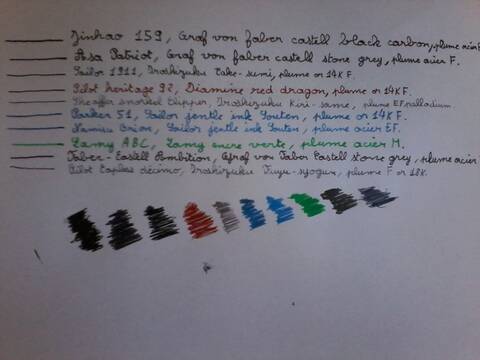 Jinhao 159, Graf von Faber Castell black carbon, plume acier F.
Asa Patriot, Graf von Faber Castell stone grey, plume acier F.
Sailor 1911, Iroshizuku Take-sumi, plume or 14K F.
Pilot heritage 92, Diamine red dragon, plume or 14K F.
Sheaffer snorkel clipper, Iroshizuku Kiri-same, plume EF palladium.
Parker 51, Sailor jentle ink Souten, plume or 14K F.
Namisu Orion, Sailor jentle ink Souten, plume acier EF.
Lamy ABC, Lamy encre verte, plume acier M.
Faber-Castell Ambition, Graf von Faber Castell stone grey, plume acier
Pilot Capless décimo, Iroshizuku Fuyu-syogun, plume F or 18K.